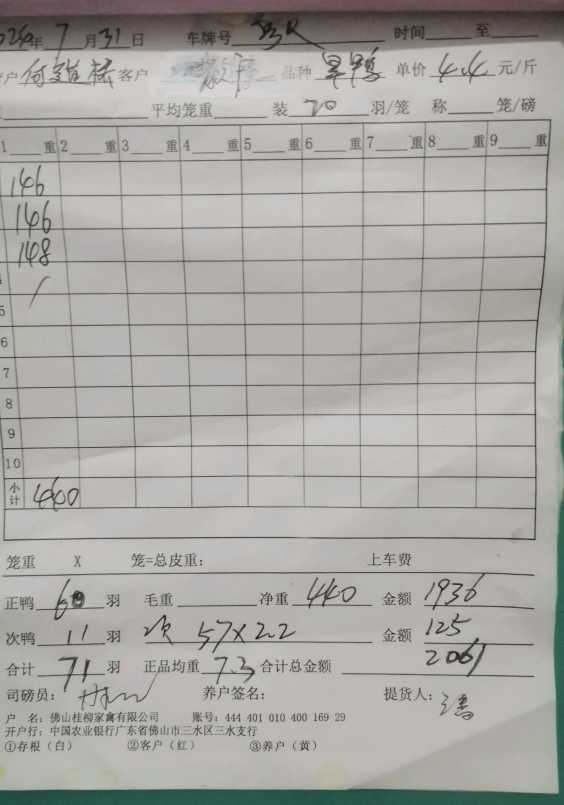 2024年 7 月 31 日 车牌号 时间 至
户 何 客户 品种 单价 4.4 元/斤
平均笼重 装 20 羽/笼 称 笼/磅
1 重 2 重 3 重 4 重 5 重 6 重 7 重 8 重 9 重
146
146
148
5
6
7
8
9
10
小计 440
笼重 X 笼=总皮重: 上车费
正鸭 60 羽 毛重 净重 440 金额 1936
次鸭 11 羽 次 57×2.2 金额 125
合计 71 羽 正品均重 7.3 合计总金额 2061
司磅员: 养户签名: 提货人:
户 名: 佛山桂柳家禽有限公司 账号: 444 401 010 400 169 29
开户行: 中国农业银行广东省佛山市三水区三水支行
①存根（白） ②客户（红） ③养户（黄）